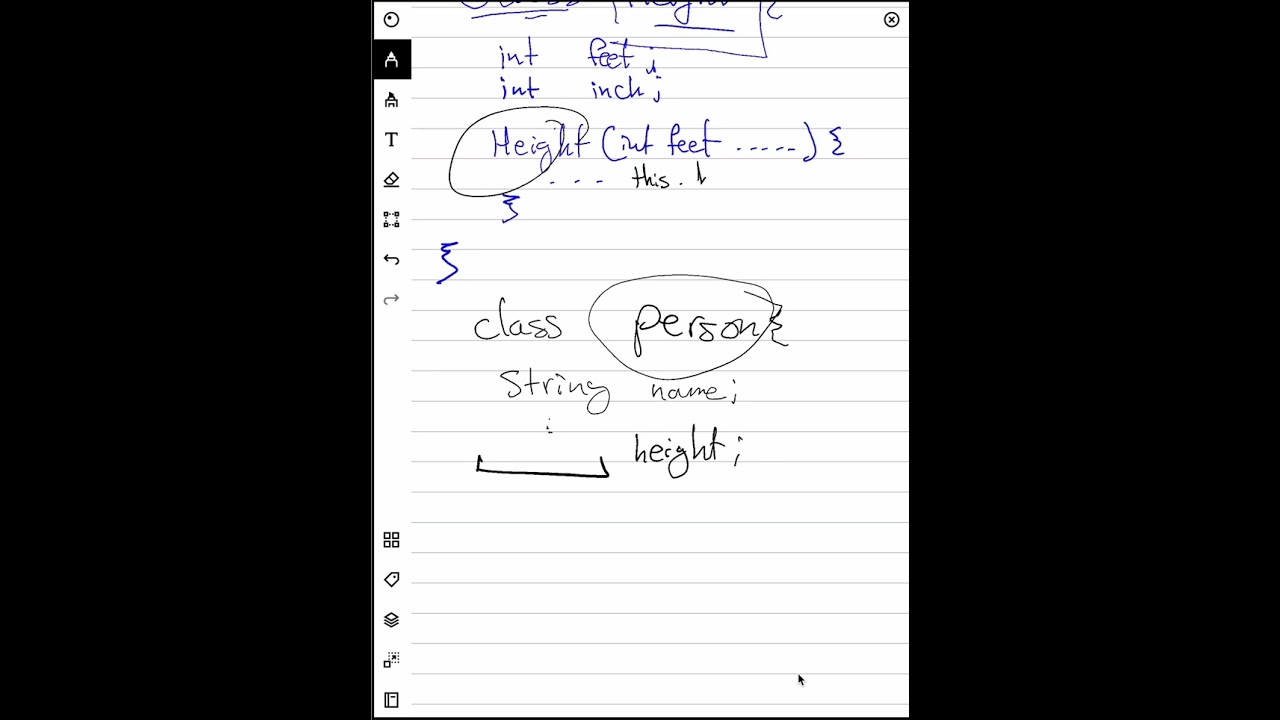 int feet;
int inch;
Height (int feet .....) {
... this.
}
}
class person {
String name;
:
height;
T